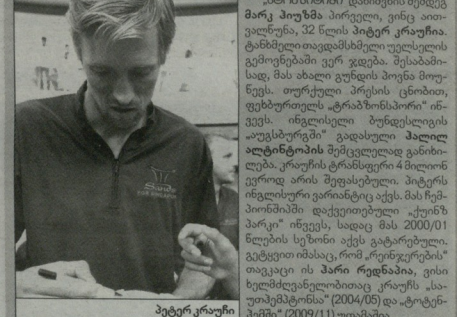 მარკ ჰიუზმა პირველი, ვინც აით-
ვალწუნა, 32 წლის პიტერ კრაუჩია.
ტანხმელი თავდამსხმელი უელსელის
გემოვნებაში ვერ ჯდება. შესაბამი-
სად, მას ახალი გუნდის პოვნა მოუ-
წევს. თურქული პრესის ცნობით,
ფეხბურთელს „ტრაბზონსპორი“ იწ-
ვევს. ინგლისელი ბუნდესლიგის
„აუგსბურგში“ გადასული ჰალილ
ალტინტოპის შემცვლელად განიხი-
ლება. კრაუჩის ტრანსფერი 4 მილიონ
ევროდ არის შეფასებული. პიტერს
ინგლისური ვარიანტიც აქვს. მას ჩემ-
პიონშიპში დაქვეითებული „ქუინზ
პარკი“ იწვევს, სადაც მას 2000/01
წლების სეზონი აქვს გატარებული.
გეტყვით იმასაც, რომ „რეინჯერების“
თავკაცი ის ჰარი რედნაპია, ვისი
ხელმძღვანელობითაც კრაუჩს „სა-
უთჰემპტონსა“ (2004/05) და „ტოტენ-
ჰემში“ (2009/11) უთამაშია.
Sands
პეტერ კრაუჩი